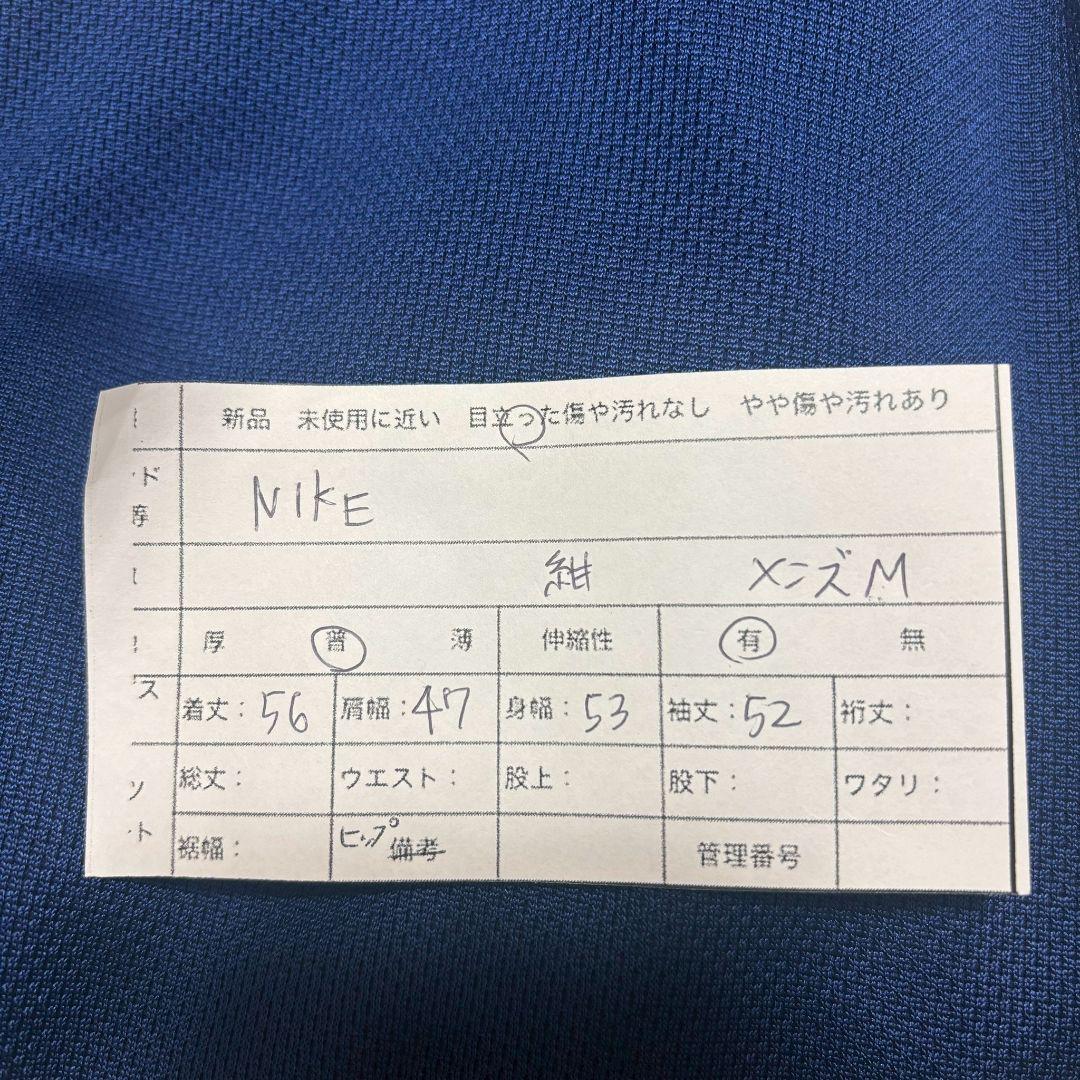 新品 未使用に近い 目立った傷や汚れなし やや傷や汚れあり
ド
NIKE
紺 メンズM
厚 普 薄 伸縮性 有 無
ス
着丈:56 肩幅:47 身幅:53 袖丈:52 裄丈:
総丈: ウエスト: 股上: 股下: ワタリ:
ソ
ト
裾幅: ヒップ 備考 管理番号